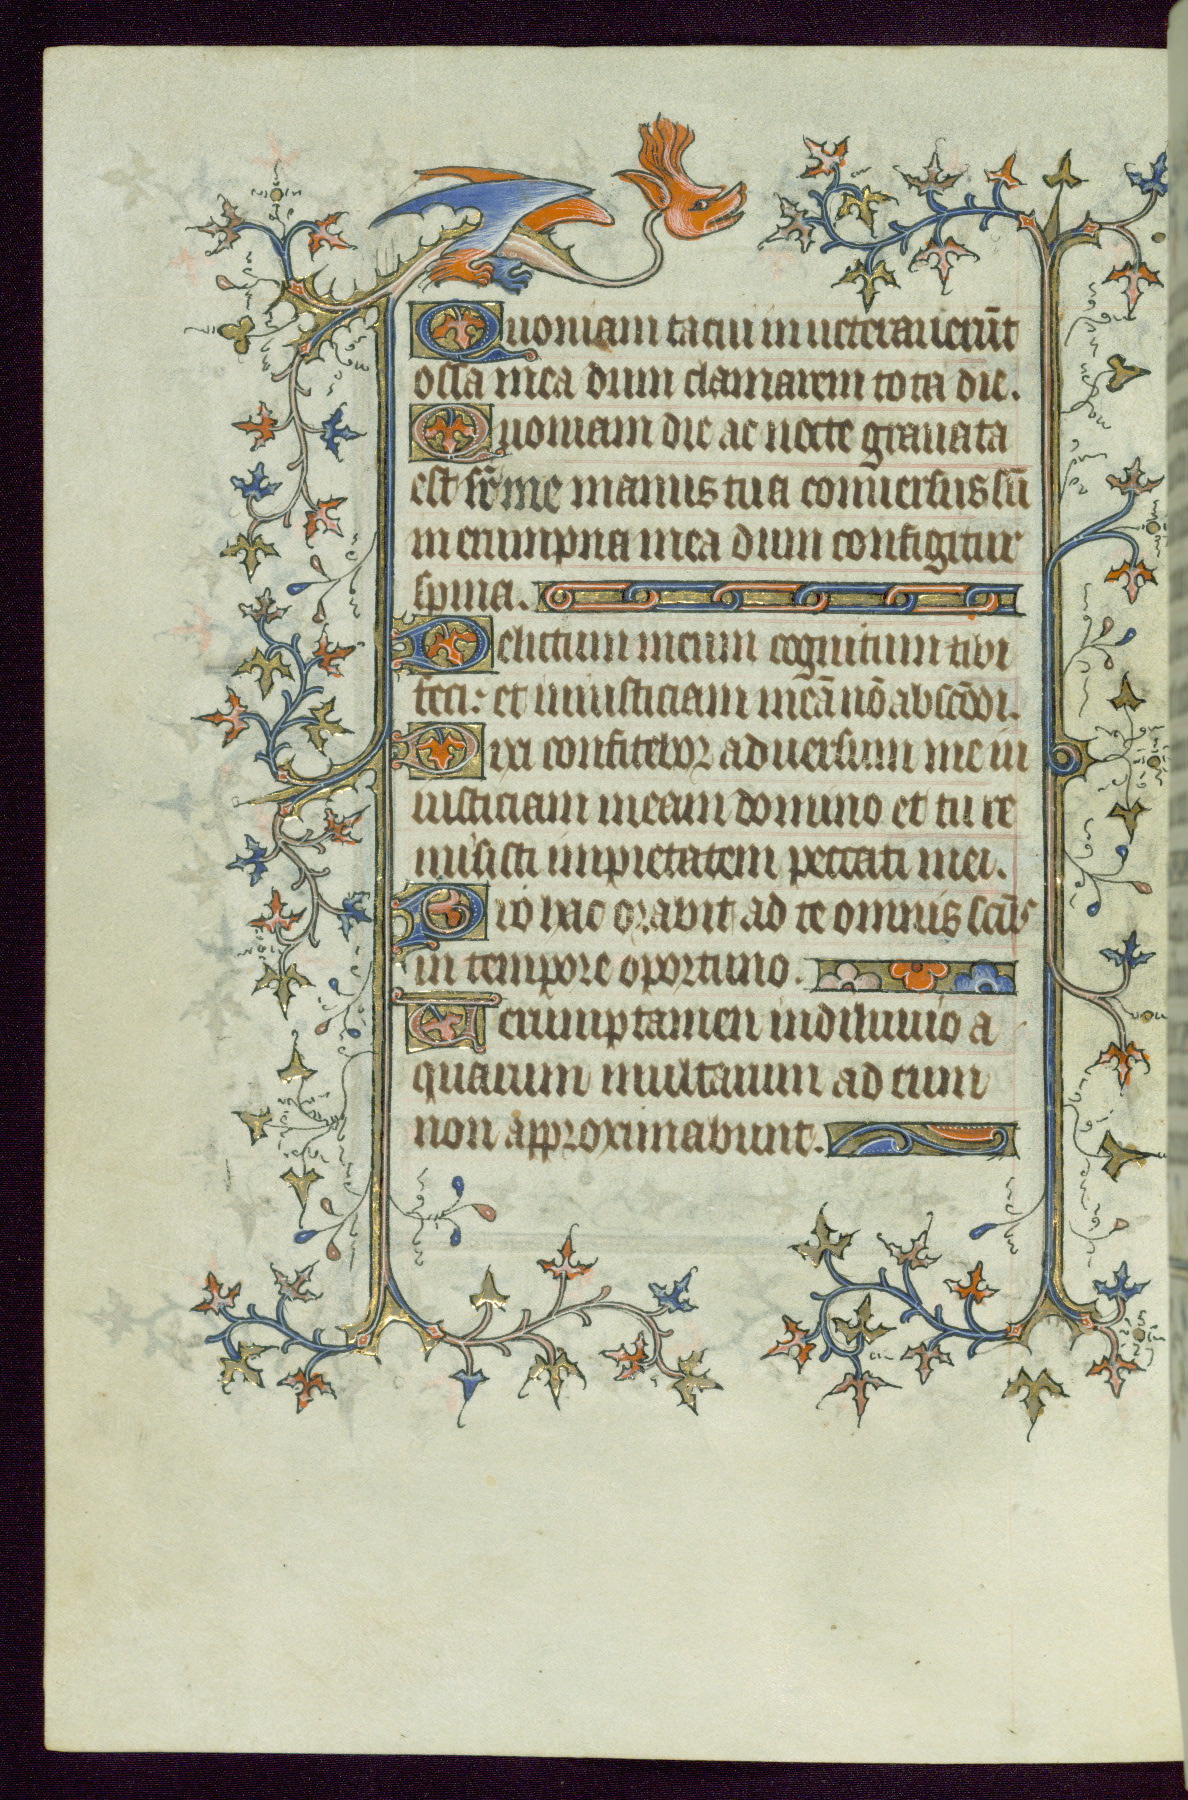 Quoniam tacui inueterauerūt
ossa mea dum clamarem tota die.
Quoniam die ac nocte grauata
est sr̄ me manus tua conuersus sū
in erumpna mea dum configitur
spina.
Delictum meum cognitum tibi
feci: et iniusticiam meā nō abscōdi.
Dixi confitebor aduersum me in
iusticiam meam domino et tu re
misisti impietatem peccati mei.
Pro hac orabit ad te omnis scūs
in tempore oportuno.
Uerumptamen in diluuio a
quarum multarum ad eum
non approximabunt.